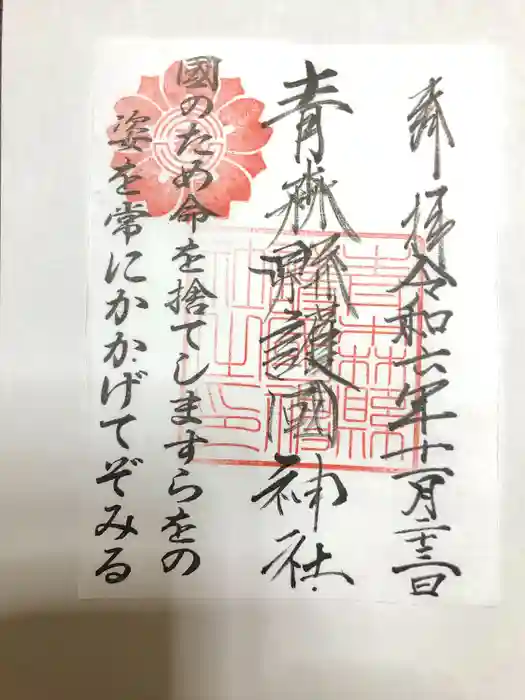 奉拝 令和六年十一月二十三日
青森縣護國神社
國のため命を捨てしますらをの
姿を常にかかげてぞみる
青森縣